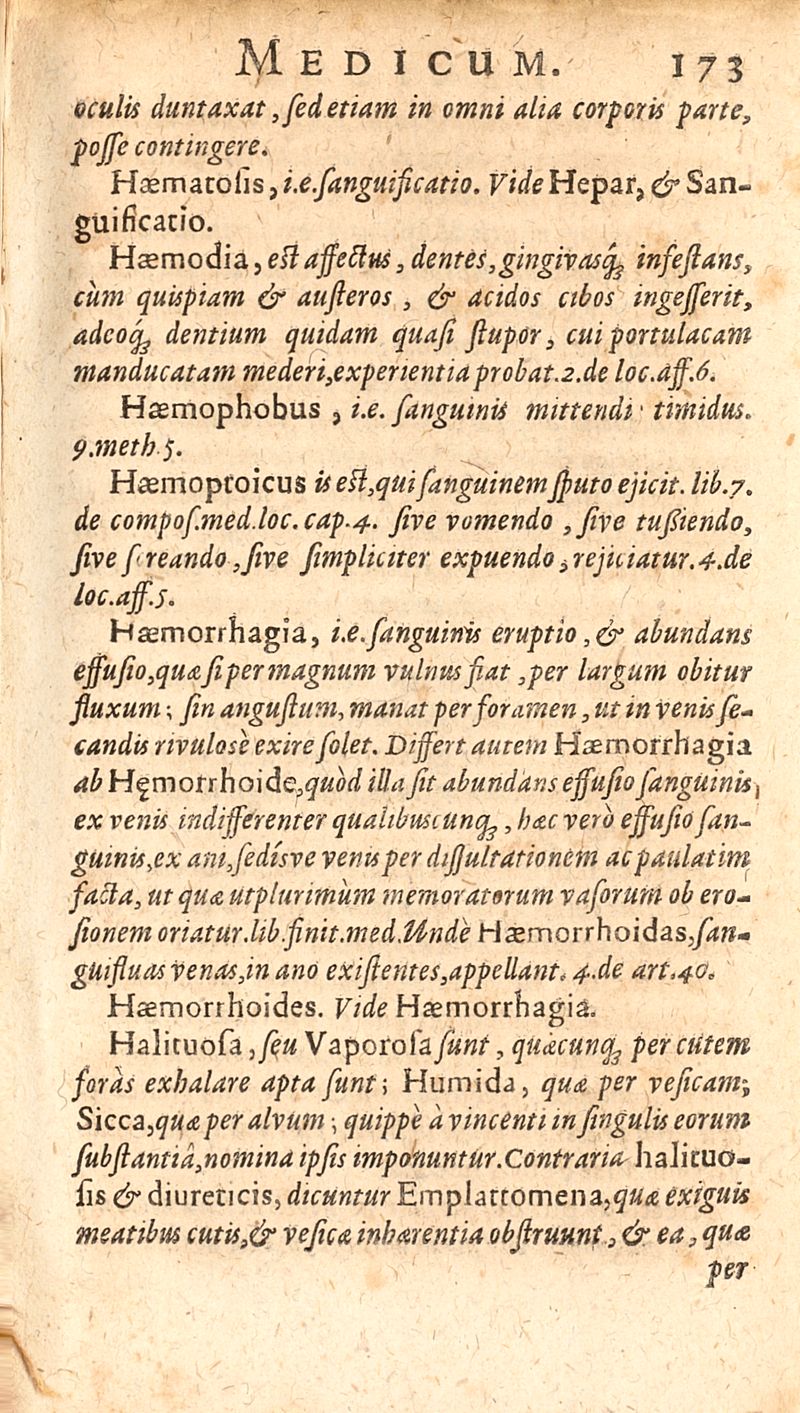 MEDICUM. 173
oculis duntaxat, ſed etiam in omni alia corporis parte,
poſſe contingere.
Hæmatoſis, i.e. ſanguificatio. Vide Hepar, & San-
guificatio.
Hæmodia, est affectus, dentes, gingivasq; infeſtans,
cùm quispiam & auſteros, & acidos cibos ingeſſerit,
adeoq; dentium quidam quaſi ſtupor, cui portulacam
manducatam mederi, experientia probat. 2. de loc. aff. 6.
Hæmophobus, i.e. ſanguinis mittendi timidus.
9. meth. 5.
Hæmoptoicus is est, qui ſanguinem ſputo ejicit. lib. 7.
de compoſ. med. loc. cap. 4. ſive vomendo, ſive tußiendo,
ſive ſcreando, ſive ſimpliciter expuendo, rejiciatur. 4. de
loc. aff. 5.
Hæmorrhagia, i.e. ſanguinis eruptio, & abundans
effuſio, quæ ſi per magnum vulnus fiat, per largum obitur
fluxum; ſin anguſtum, manat per foramen, ut in venis ſe-
candis rivuloſè exire ſolet. Differt autem Hæmorrhagia
ab Hęmorrhoide, quòd illa ſit abundans effuſio ſanguinis,
ex venis indifferenter qualibuscunq;, hæc verò effuſio ſan-
guinis, ex ani, ſedísve venis per diſſultationem ac paulatim
facta, ut quæ utplurimùm memoratorum vaſorum ob ero-
ſionem oriatur. lib. finit. med. Undè Hæmorrhoidas, ſan-
guifluas venas, in ano exiſtentes, appellant. 4. de art. 40.
Hæmorrhoides. Vide Hæmorrhagia.
Halituoſa, ſeu Vaporoſa ſunt, quæcunq; per cutem
foràs exhalare apta ſunt; Humida, quæ per veſicam;
Sicca, quæ per alvum; quippè à vincenti in ſingulis eorum
ſubſtantiâ, nomina ipſis imponuntur. Contraria halituo-
ſis & diureticis, dicuntur Emplattomena, quæ exiguis
meatibus cutis, & veſicæ inhærentia obſtruunt, & ea, quæ
per